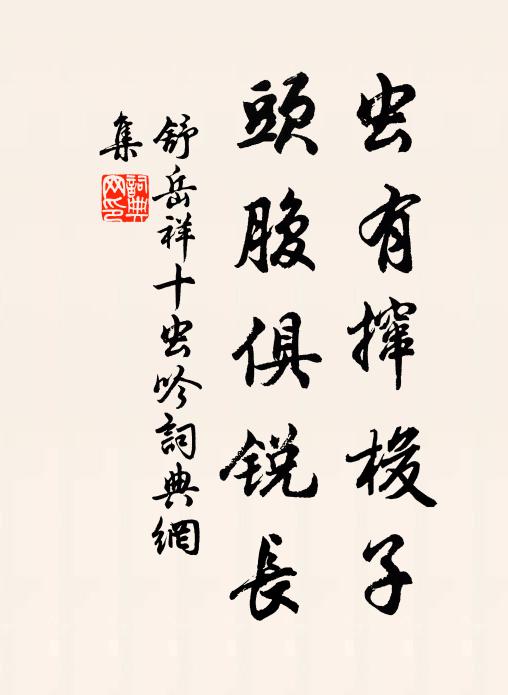 虫有撺梭子
頭腹俱锐長
舒岳祥十虫吟詞典網
集
詞典網印